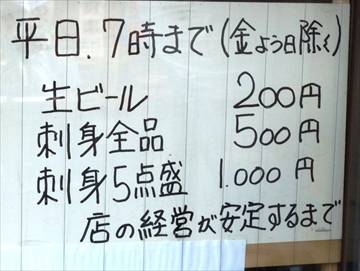 平日.7時まで(金よう日除く)
生ビール 200円
刺身全品 500円
刺身5点盛 1.000円
店の経営が安定するまで